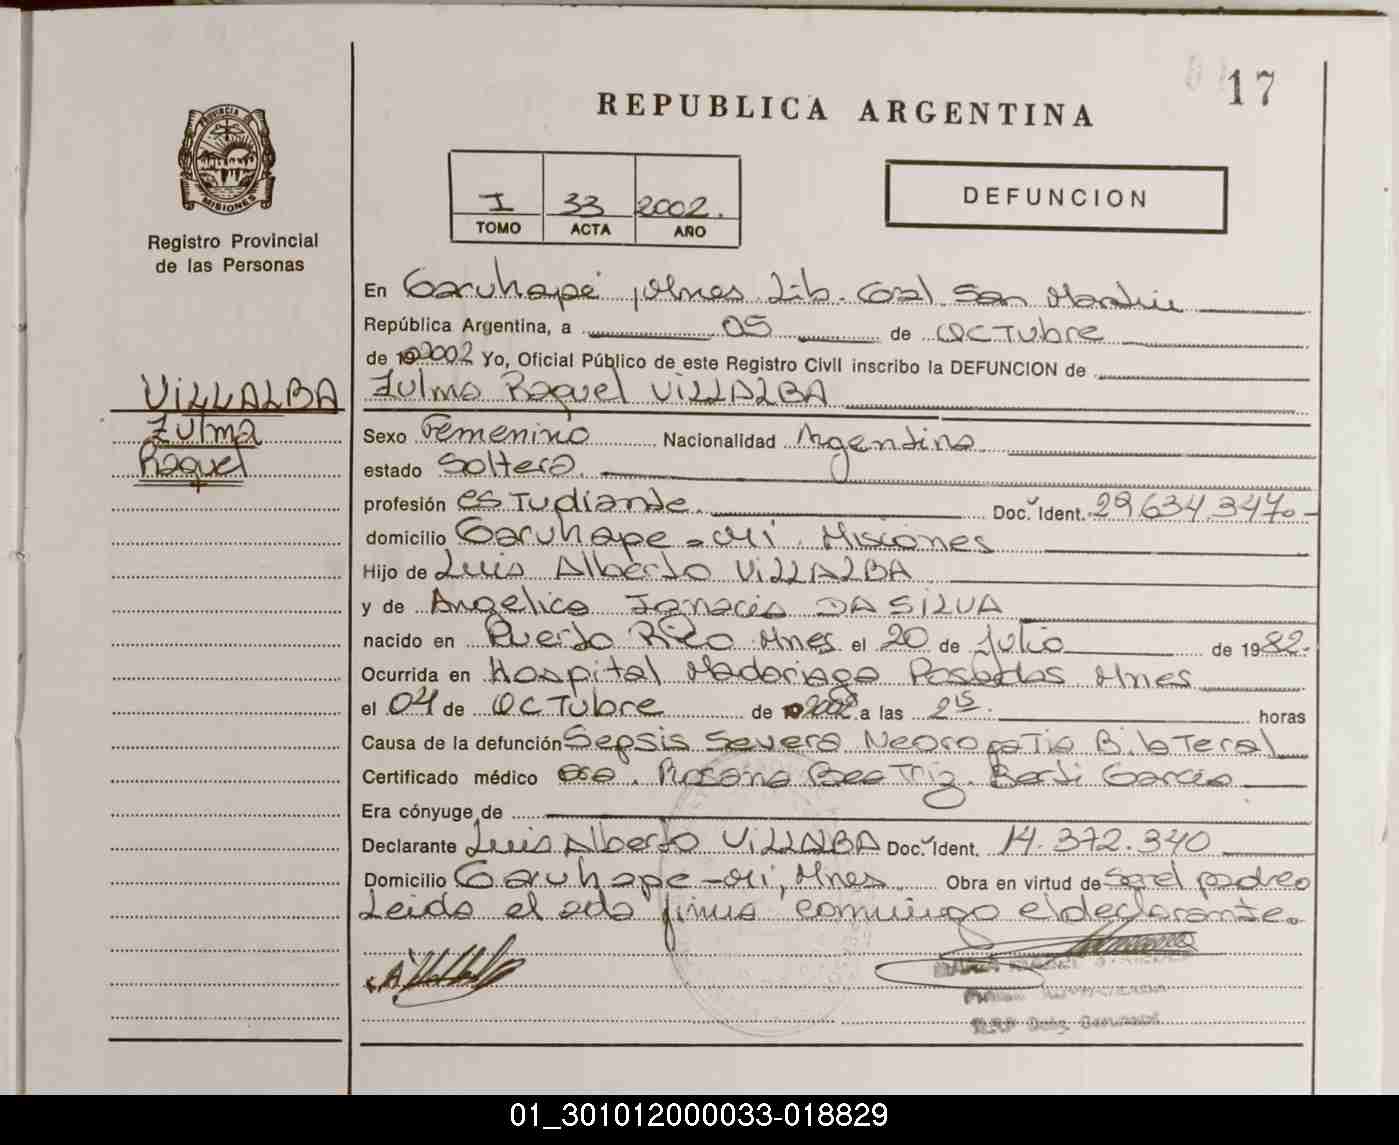 17
REPUBLICA ARGENTINA
PROVINCIA DE
MISIONES
Registro Provincial
de las Personas
I 33 2002.
TOMO ACTA AÑO
DEFUNCION
En Garuhapé, Mnes Lib. Gral San Martín
República Argentina, a 05 de OCTubre
de 2002 Yo, Oficial Público de este Registro Civil inscribo la DEFUNCION de
VILLALBA
Zulma
Raquel
Zulma Raquel VILLALBA
Sexo Femenino Nacionalidad Argentina
estado Soltera.
profesión esTudiante. Doc. Ident. 29.634.347.-
domicilio Garuhape-mi. Misiones
Hijo de Luis Alberto VILLALBA
y de Angelica Ignacia DA SILVA
nacido en Puerto Rico Mnes el 20 de Julio de 1982.
Ocurrida en Hospital Madariaga Posadas Mnes
el 04 de OCTubre de 2002 a las 2 15. horas
Causa de la defunción Sepsis Severa Bilateral
Certificado médico Dra. Rosana BeaTriz. Berti Garcia
Era cónyuge de
Declarante Luis Alberto VILLALBA Doc. Ident. 14.372.340
Domicilio Garuhape-mi, Mnes Obra en virtud de Ser el padre
Leida el acta firma conmigo el declarante.
01_301012000033-018829